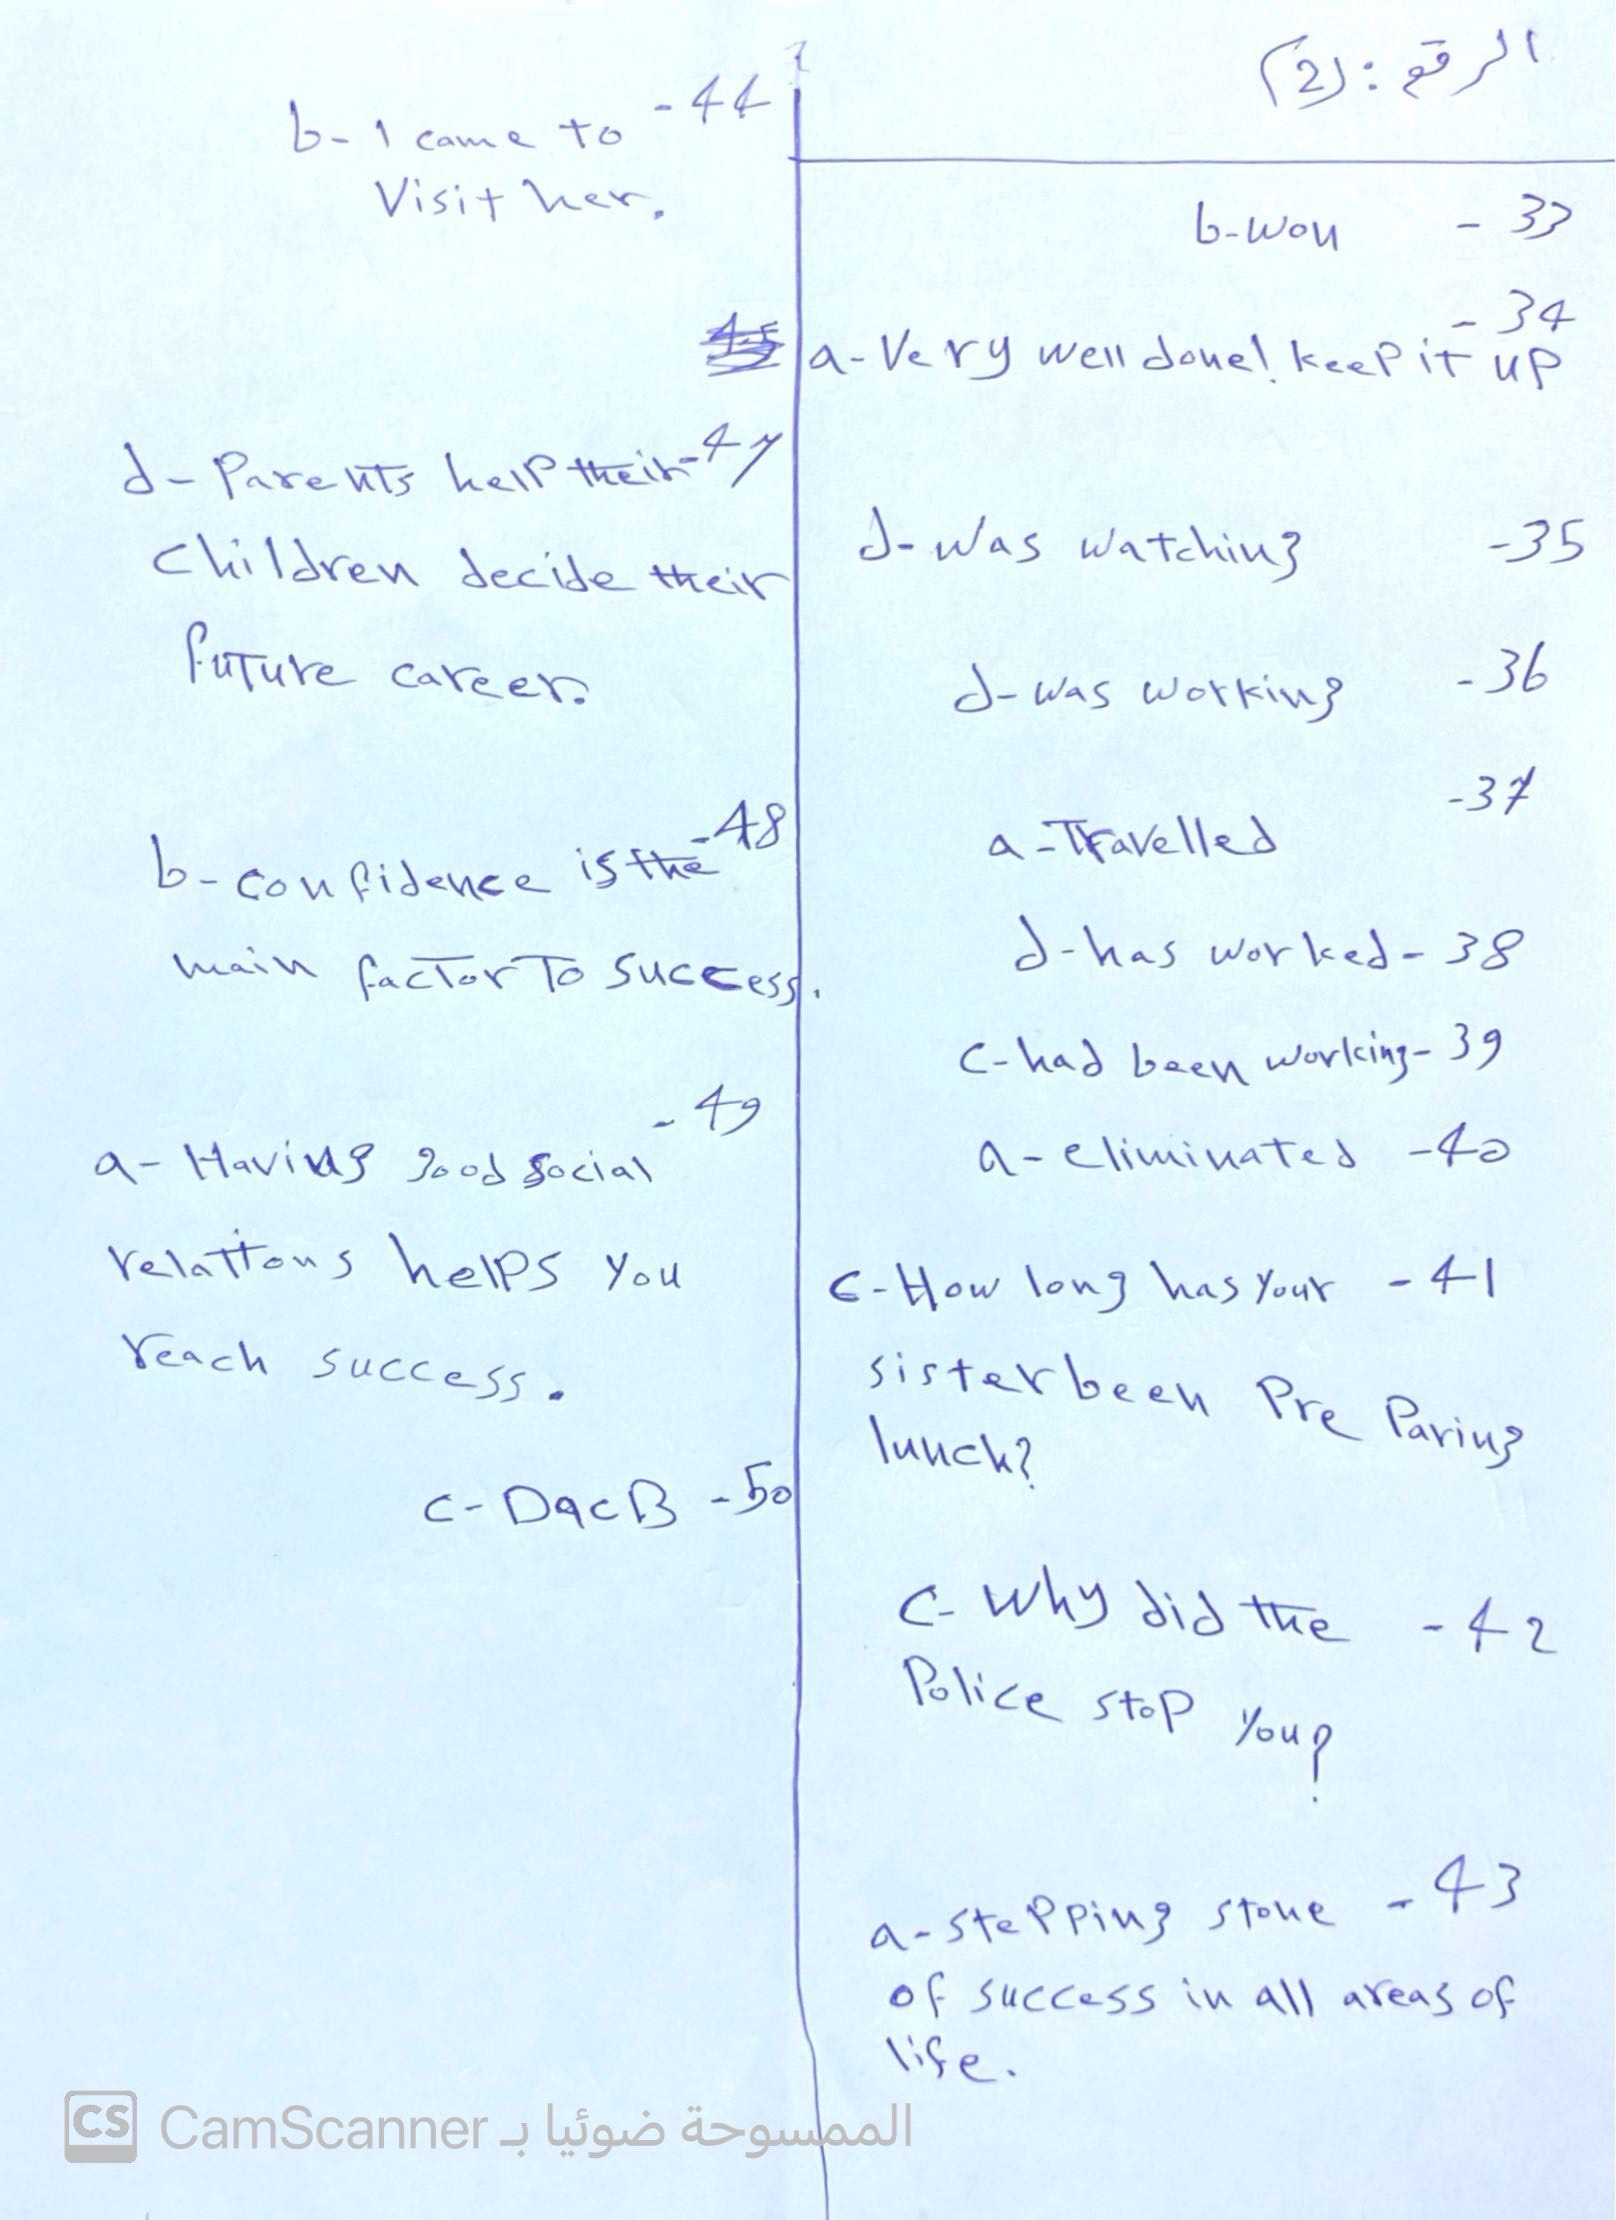 الرقم : (2)
33 - b-won
34 -
a-Very well done! keep it up
35- d-was watching
36 - d-was working
37-
a-Travelled
38 - d-has worked
39 - c-had been working
40- a-eliminated
41 - c-How long has your
sister been Preparing
lunch?
42 - c-Why did the
Police stop you?
43 - a-stepping stone
of success in all areas of
life.
44 -
b-I came to
Visit her.
45
47- d-Parents help their
children decide their
future career.
48-
b-confidence is the
main factor To success.
49 -
a-Having good social
relations helps you
reach success.
50 - c-DacB
CS CamScanner الممسوحة ضوئيا بـ